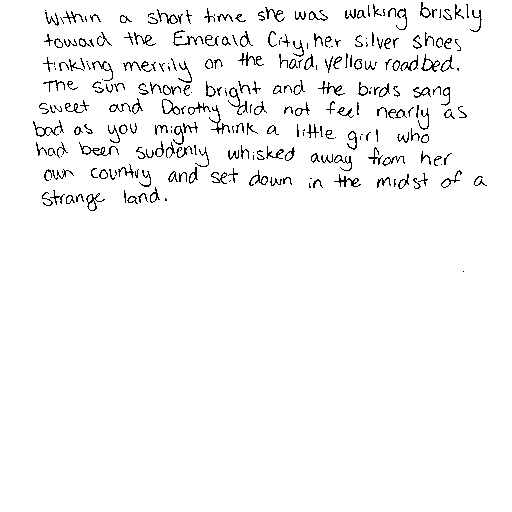 Within a short time she was walking briskly
toward the Emerald City, her silver shoes
tinkling merrily on the hard, yellow roadbed.
The sun shone bright and the birds sang
sweet and Dorothy did not feel nearly as
bad as you might think a little girl who
had been suddenly whisked away from her
own country and set down in the midst of a
strange land.